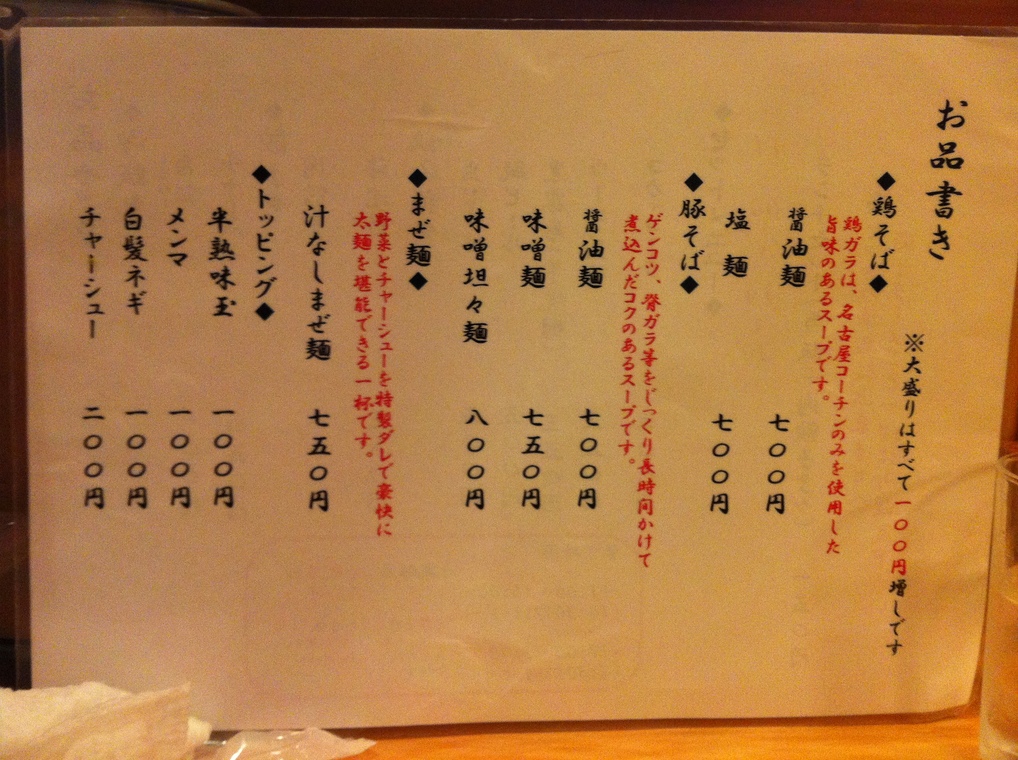 お品書き
※大盛りはすべて一〇〇円増しです
◆鶏そば◆
鶏ガラは、名古屋コーチンのみを使用した
旨味のあるスープです。
醤油麺 七〇〇円
塩麺 七〇〇円
◆豚そば◆
ゲンコツ、脊ガラ等をじっくり長時間かけて
煮込んだコクのあるスープです。
醤油麺 七〇〇円
味噌麺 七五〇円
味噌坦々麺 八〇〇円
◆まぜ麺◆
野菜とチャーシューを特製ダレで豪快に
太麺を堪能できる一杯です。
汁なしまぜ麺 七五〇円
◆トッピング◆
半熟味玉 一〇〇円
メンマ 一〇〇円
白髪ネギ 一〇〇円
チャーシュー 二〇〇円